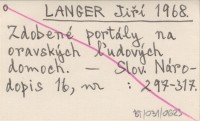 LANGER Jiří 1968.
Zdobené portály na
oravských ľudových
domoch. — Slov. Náro-
dopis 16, nr : 297-317.